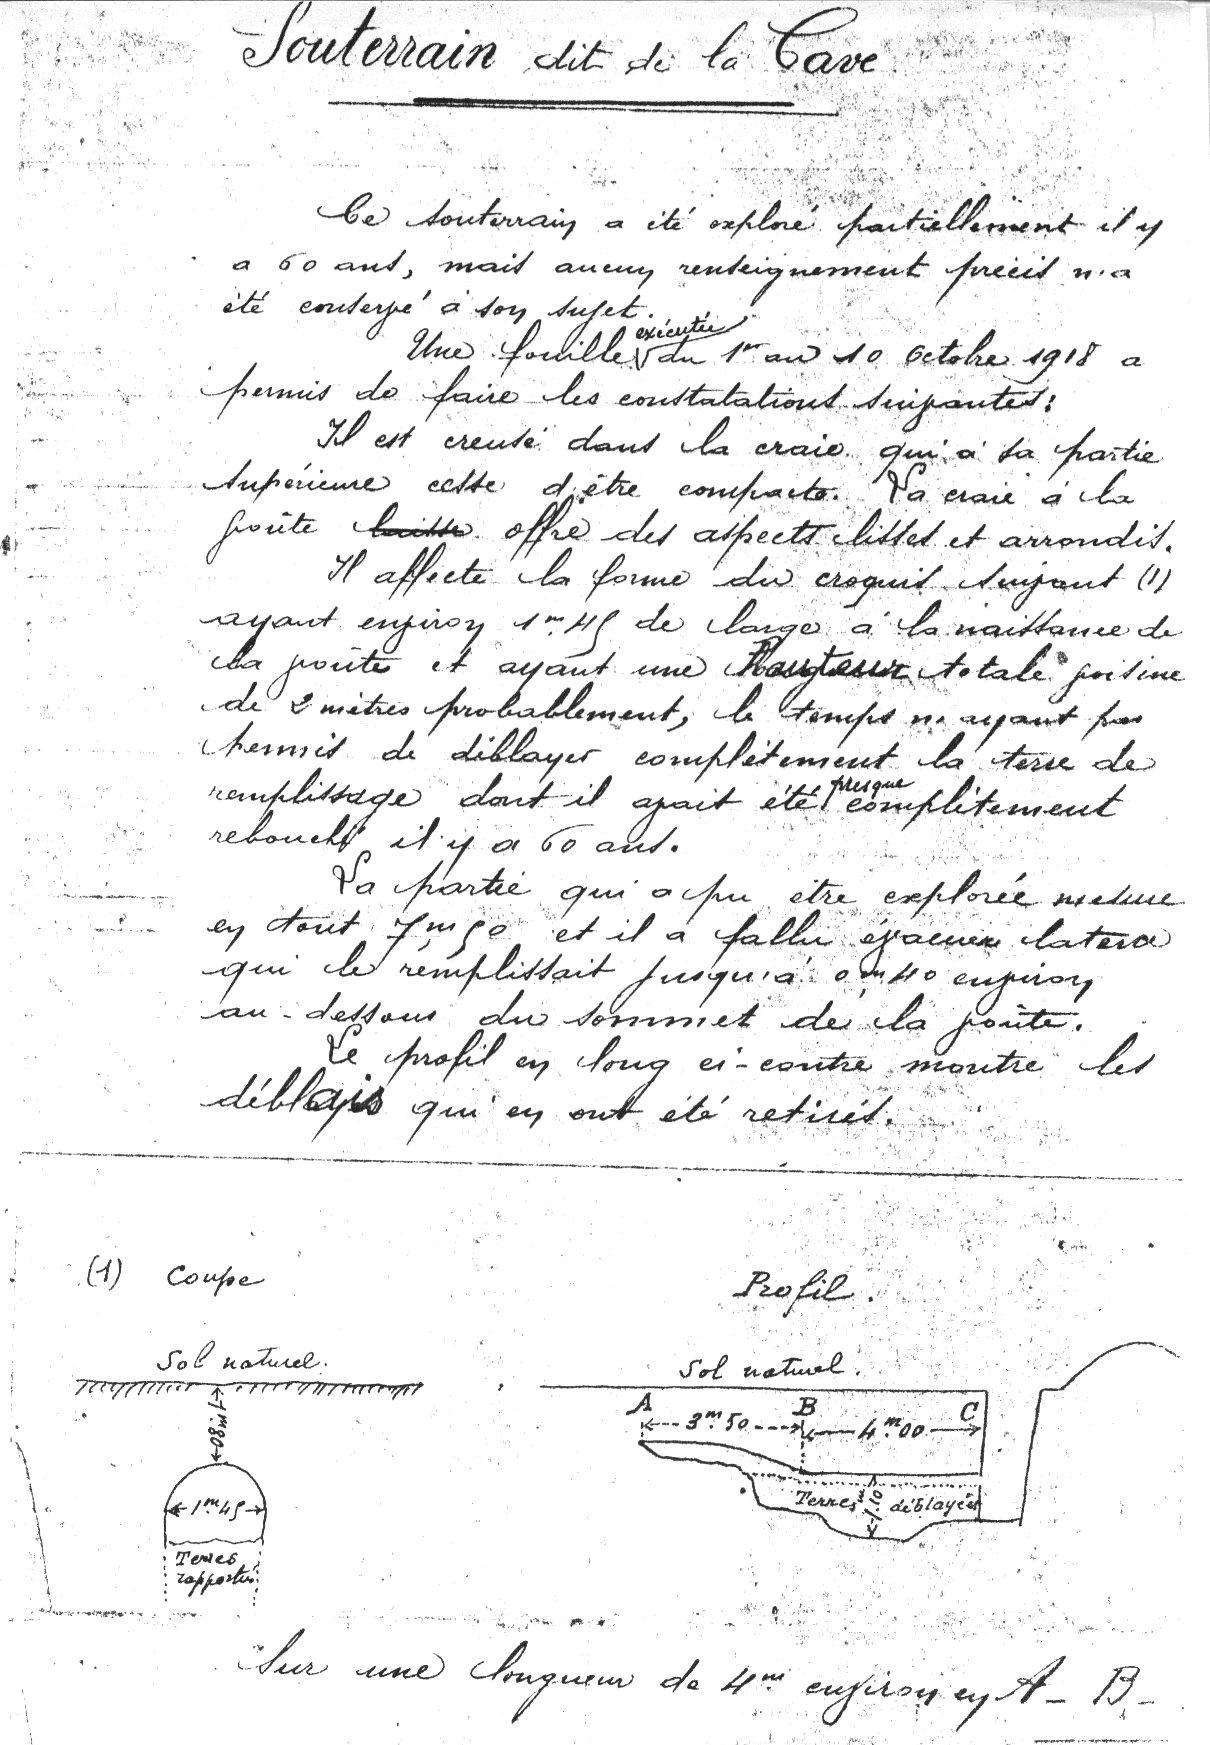 Souterrain dit de la Cave
Ce souterrain a été exploré partiellement il y
a 60 ans, mais aucun renseignement précis n'a
été conservé à son sujet.
Une fouille exécutée du 1er au 10 Octobre 1918 a
permis de faire les constatations suivantes:
Il est creusé dans la craie qui à sa partie
supérieure cesse d'être compacte. La craie à la
voûte laisse offre des aspects lisses et arrondis.
Il affecte la forme du croquis suivant (1)
ayant environ 1m.45 de large à la naissance de
la voûte et ayant une hauteur totale voisine
de 2 mètres probablement, le temps n'ayant pas
permis de déblayer complètement la terre de
remplissage dont il avait été presque complètement
rebouché il y a 60 ans.
La partie qui a pu être explorée mesure
en tout 7m,50 et il a fallu évacuer la terre
qui le remplissait jusqu'à 0m,40 environ
au-dessous du sommet de la voûte.
Le profil en long ci-contre montre les
déblais qui en ont été retirés.
(1) Coupe
Profil.
Sol naturel.
1m.80
1m.45
Terres
rapportées
Sol naturel.
A B C
3m.50 4m.00
Terres déblayées
1.10
Sur une longueur de 4m. environ en A - B -